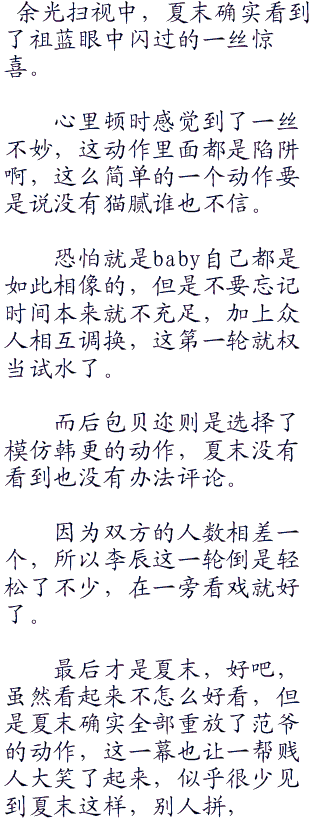 余光扫视中，夏末确实看到
了祖蓝眼中闪过的一丝惊
喜。
心里顿时感觉到了一丝
不妙，这动作里面都是陷阱
啊，这么简单的一个动作要
是说没有猫腻谁也不信。
恐怕就是baby自己都是
如此相像的，但是不要忘记
时间本来就不充足，加上众
人相互调换，这第一轮就权
当试水了。
而后包贝迩则是选择了
模仿韩更的动作，夏末没有
看到也没有办法评论。
因为双方的人数相差一
个，所以李辰这一轮倒是轻
松了不少，在一旁看戏就好
了。
最后才是夏末，好吧，
虽然看起来不怎么好看，但
是夏末确实全部重放了范爷
的动作，这一幕也让一帮贱
人大笑了起来，似乎很少见
到夏末这样，别人拼，